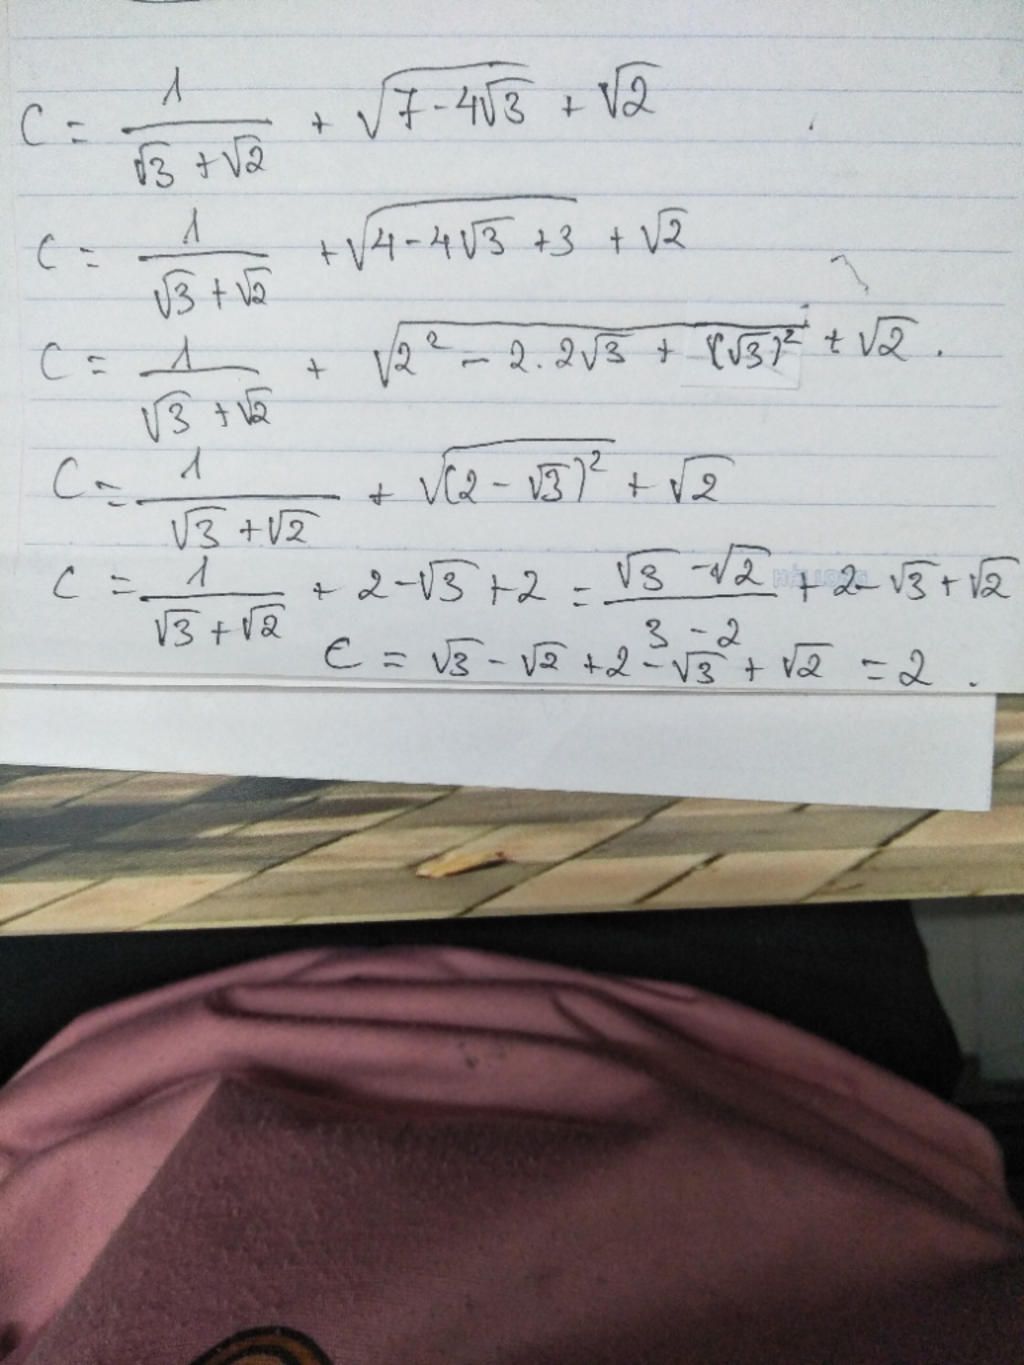 C = 1/(√3 + √2) + √(7 - 4√3) + √2
C = 1/(√3 + √2) + √(4 - 4√3 + 3) + √2
C = 1/(√3 + √2) + √(2² - 2.2√3 + (√3)²) + √2 .
C = 1/(√3 + √2) + √((2 - √3)²) + √2
C = 1/(√3 + √2) + 2 - √3 + 2 = (√3 - √2)/(3 - 2) + 2 - √3 + √2
C = √3 - √2 + 2 - √3 + √2 = 2 .